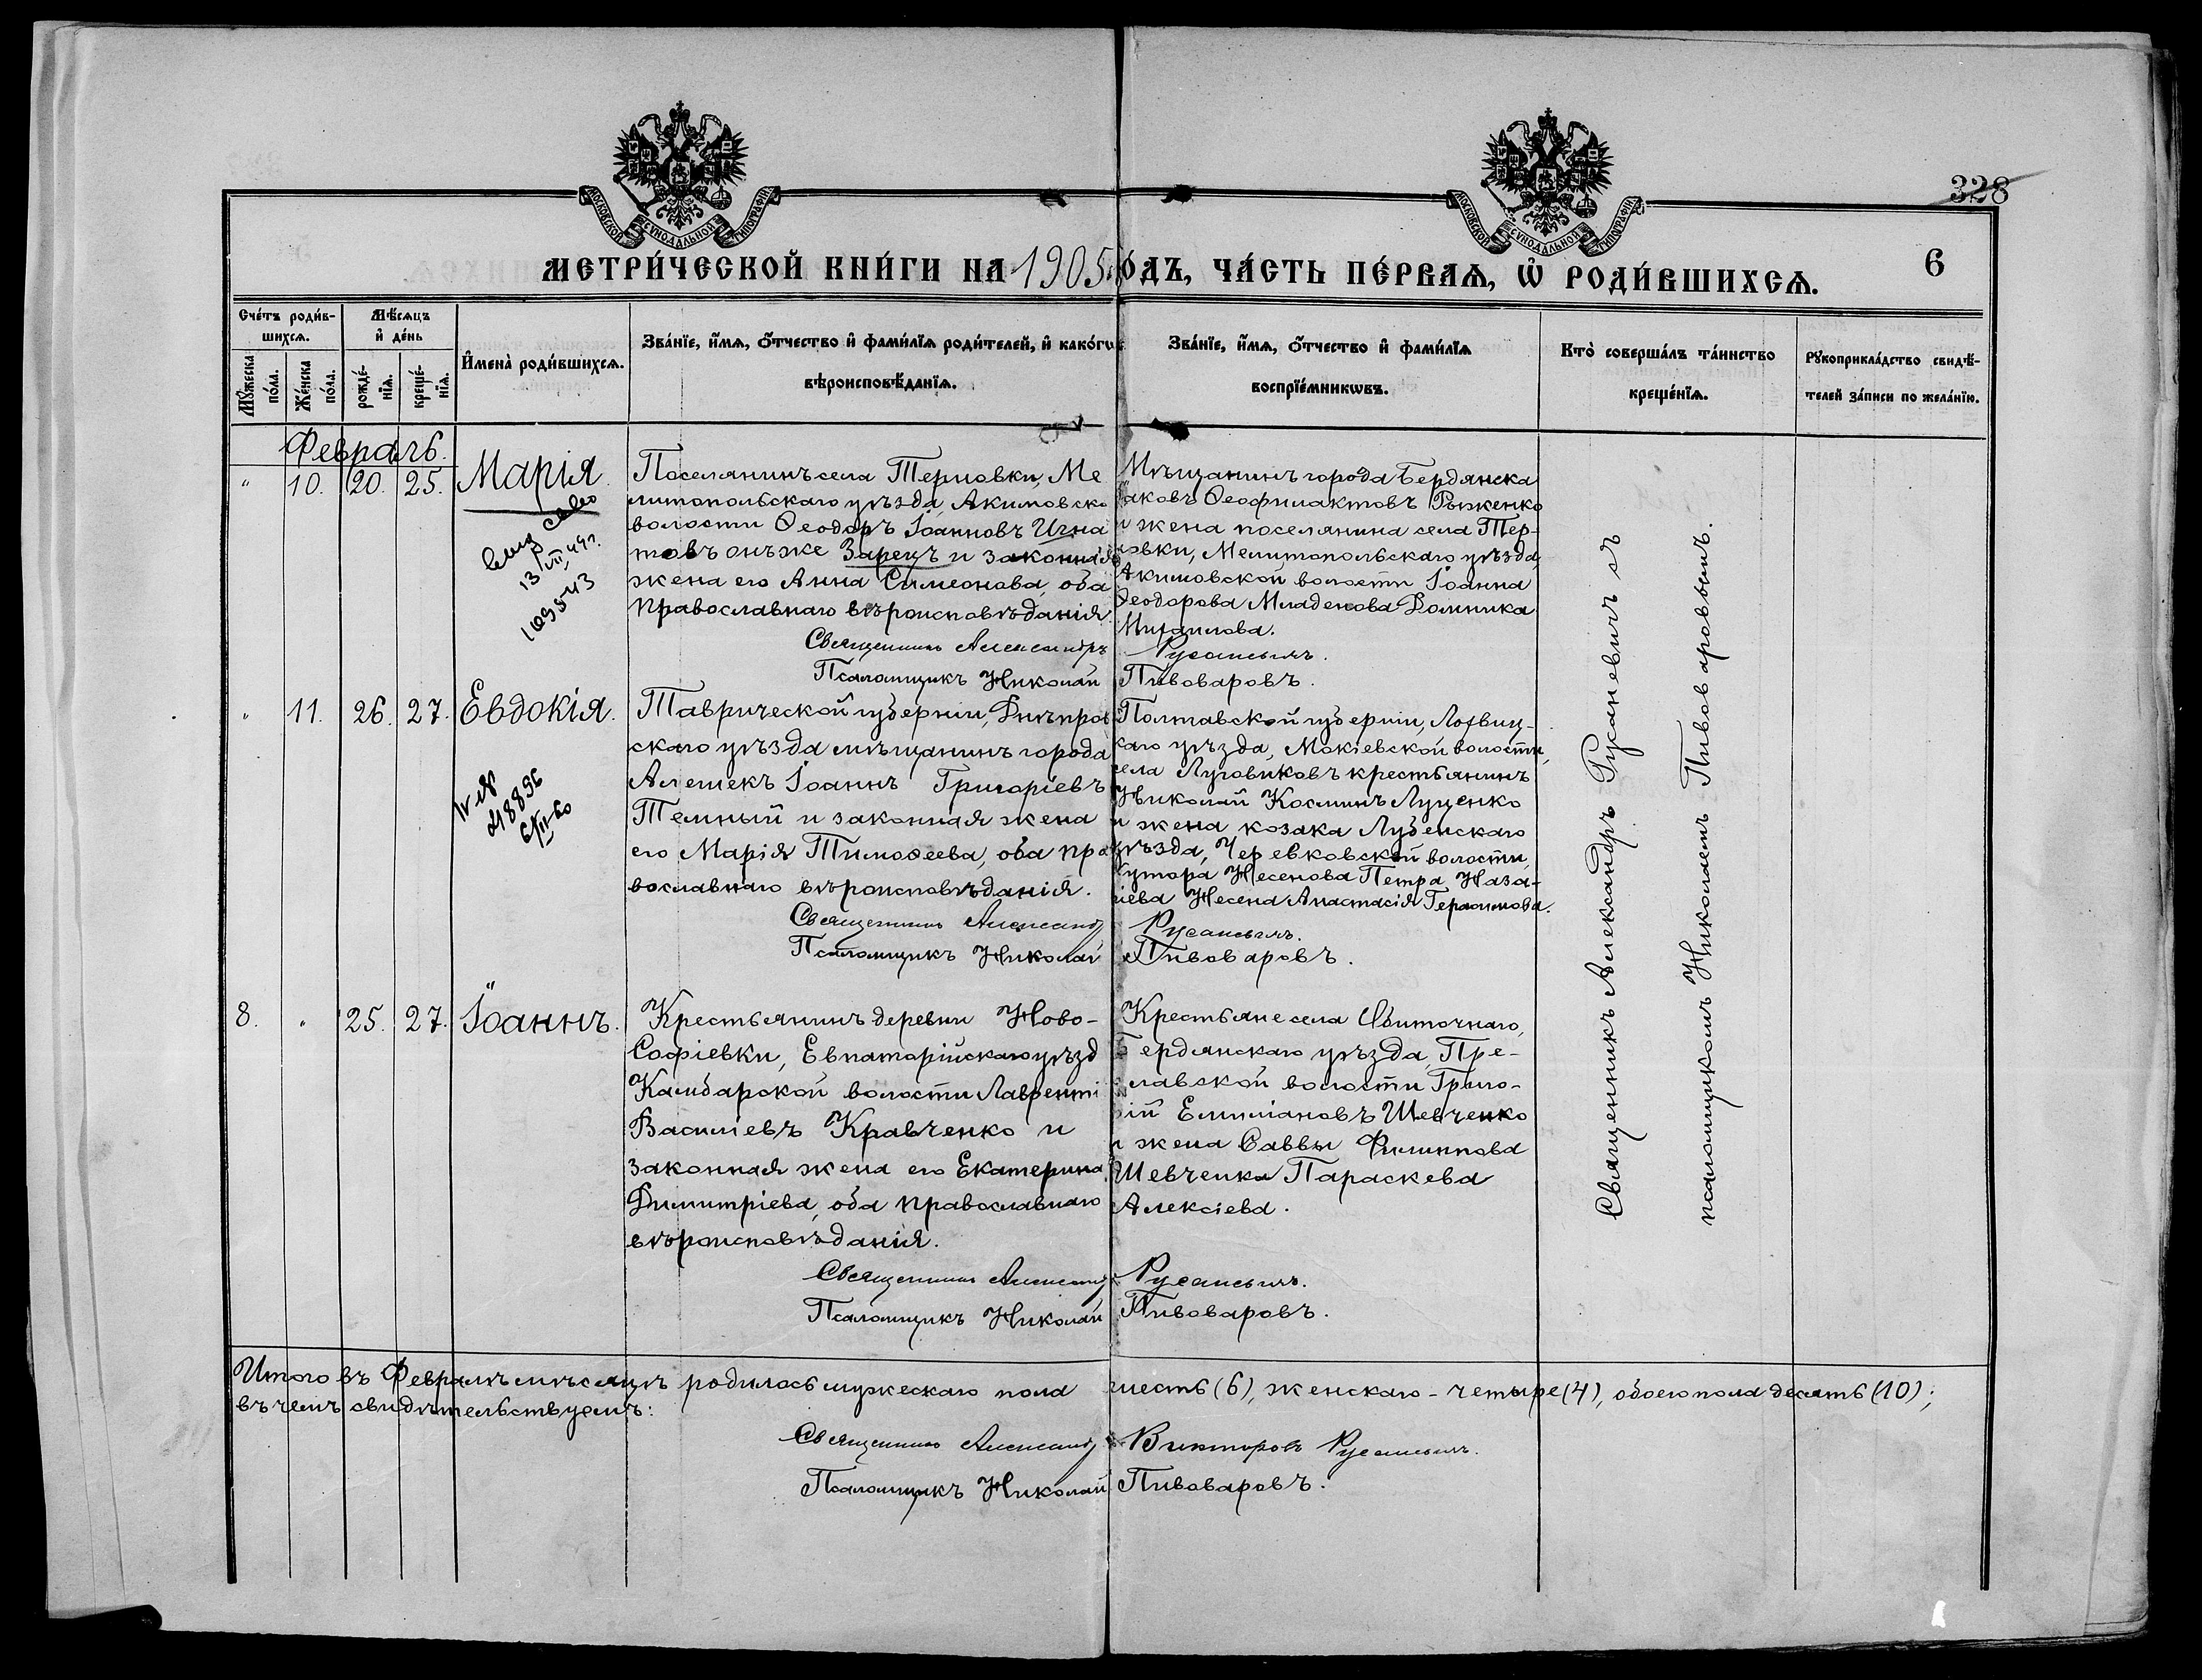 МОСКОВСКОЙ СѴНОДАЛЬНОЙ ТИПОГРАФІИ
МОСКОВСКОЙ СѴНОДАЛЬНОЙ ТИПОГРАФІИ
328
МЕТРИ́ЧЕСКОЙ КНИ́ГИ НА 1905 ГОДЪ, ЧА́СТЬ ПЕ́РВАѦ, Ѡ҆ РОДИ́ВШИХСѦ.
6
Сче́тъ роди́в-
шихсѧ.
Мѣ́сѧцъ
и҆ де́нь
Мꙋ́жеска по́ла.
Же́нска по́ла.
рожде́-нїѧ.
креще́-нїѧ.
И҆мена̀ роди́вшихсѧ.
Зва́нїе, и҆́мѧ, ѻ҆́тчество и҆ фами́лїѧ роди́телей, и҆ како́гѡ
вѣроисповѣ́данїѧ.
Зва́нїе, и҆́мѧ, ѻ҆́тчество и҆ фами́лїѧ
воспрїе́мникѡвъ.
Кто̀ соверша́лъ та́инство
креще́нїѧ.
Рꙋкоприкла́дство свидѣ́-
телей за́писи по жела́нїю.
Февраль.
" 10. 20. 25. Марія.
Поселянинъ села Терновки, Ме
литопольскаго уѣзда, Акимовско
волости Ѳеодоръ Іоанновъ Игна
товъ онъ же Зарецъ и законная
жена его Анна Симеонова, оба
православнаго вѣроисповѣданія.
Священникъ Александръ
Псаломщикъ Николай
Мѣщанинъ города Бердянска
Іаковъ Ѳеофилактовъ Рыженко
и жена поселянина села Тер-
новки, Мелитопольскаго уѣзда,
Акимовской волости Іоанна
Ѳеодорова Младенова Домника
Михаилова.
Русаневичъ.
Пивоваровъ.
13/VII 49г.
1093543
" 11. 26. 27. Евдокія.
Таврической губерніи, Днѣпров
скаго уѣзда мѣщанинъ города
Алешекъ Іоаннъ Григоріевъ
Темный и законная жена
его Марія Тимоѳеева, оба пра
вославнаго вѣроисповѣданія.
Священникъ Александ
Псаломщикъ Николай
Полтавской губерніи, Лохвиц-
каго уѣзда, Мокіевской волости,
села Луговиковъ крестьянинъ
Николай Косминъ Луценко
и жена козака Лубенскаго
уѣзда, Черевковской волости,
хутора Несенова Петра Наза-
ріева Несена Анастасія Герасимова.
Русаневичъ.
Пивоваровъ.
8. " 25. 27. Іоаннъ.
Крестьянинъ деревни Ново-
Софіевки, Евпаторійскаго уѣзд
Камбарской волости Лаврентi
Василіевъ Кравченко и
законная жена его Екатерина
Димитріева, оба православнаго
вѣроисповѣданія.
Священникъ Александ
Псаломщикъ Николай
Крестьяне села Обиточнаго,
Бердянскаго уѣзда, Пре-
славской волости Григо-
рій Емиліановъ Шевченко
и жена Саввы Филиппова
Шевченка Параскева
Алексіева.
Русаневичъ.
Пивоваровъ.
Священникъ Александръ Русаневичъ съ
псаломщикомъ Николаемъ Пивоваровымъ.
Итого въ Февралѣ мѣсяцѣ родилось мужескаго пола шесть (6), женскаго - четыре (4), обоего пола десять (10);
въ чемъ свидѣтельствуемъ:
Священникъ Александ Викторовъ Русаневичъ.
Псаломщикъ Николай Пивоваровъ.